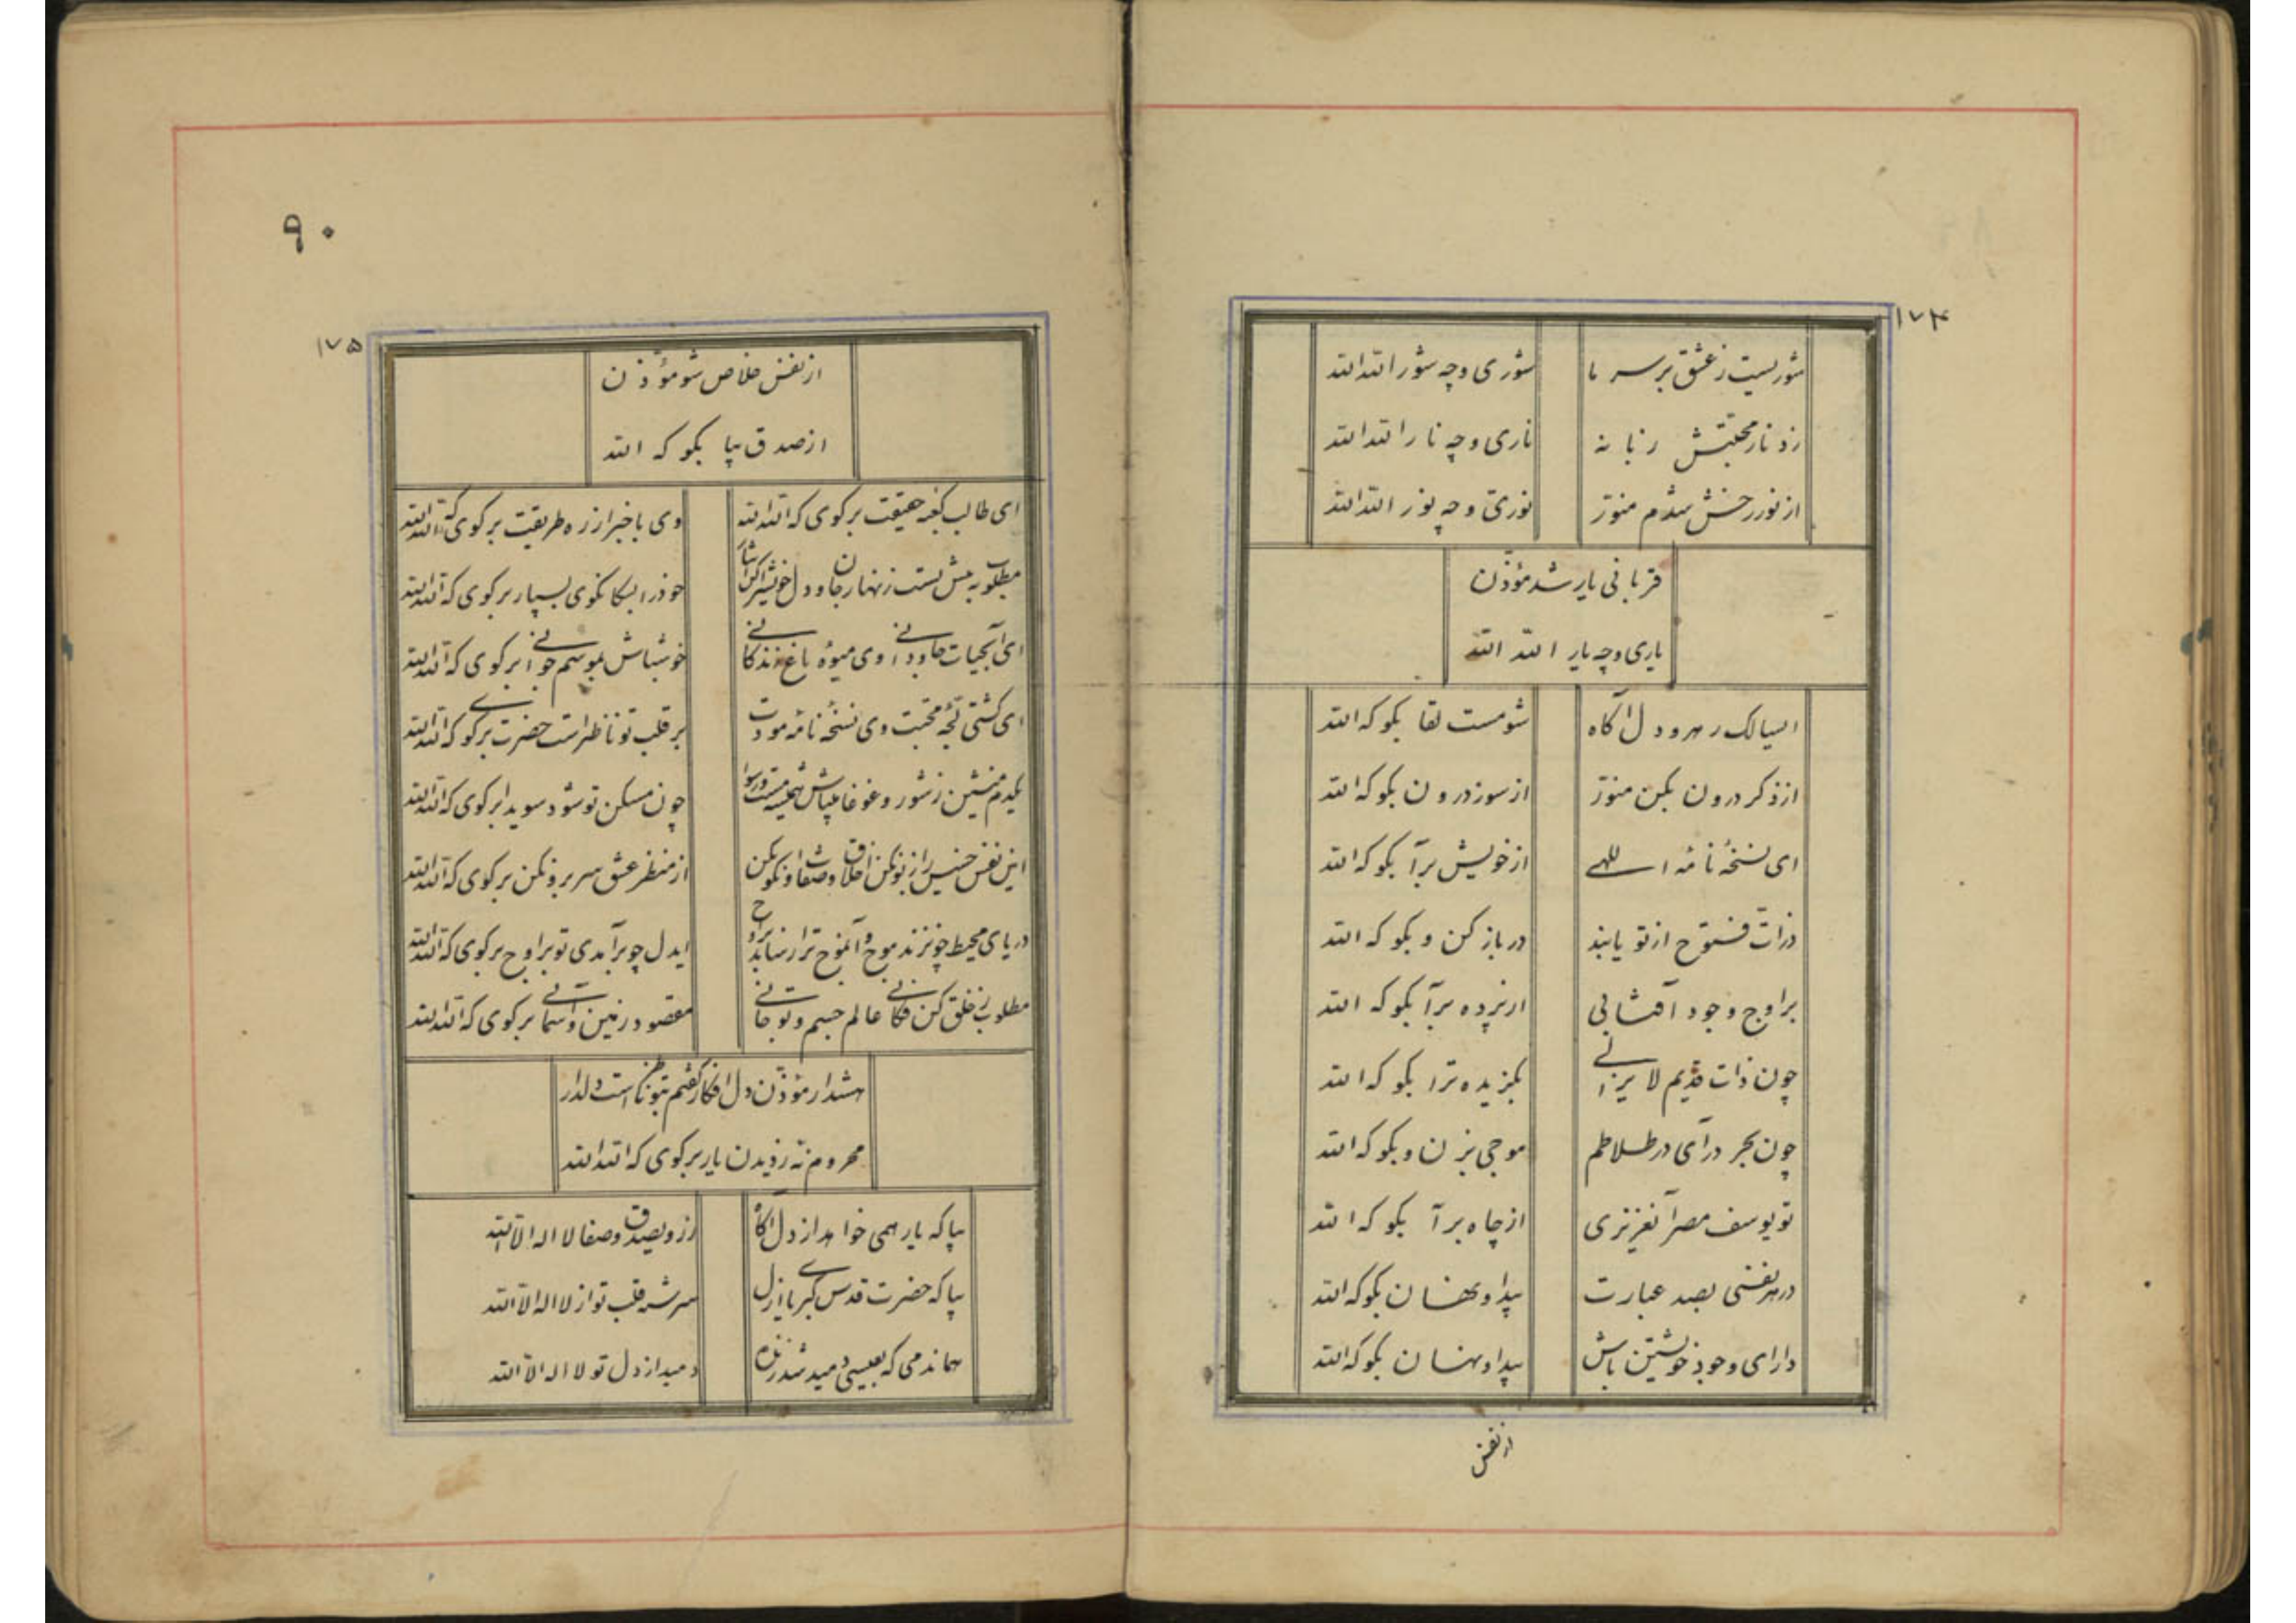 ۱۷۴
شوریست ز عشق بر سر ما شوری و چه شور الله الله
زد نار محبتش زبانه ناری و چه نار الله الله
از نور رخش شدم منور نوری و چه نور الله الله
قربانی یار شد مؤذن
یاری و چه یار الله الله
ایسالک رهرو دل آگاه شو مست لقا بگو که الله
از ذکر درون بکن منور از سوز درون بگو که الله
ای نسخهٔ نامهٔ اللهی از خویش برآ بگو که الله
ذرات فتوح از تو یابند در باز کن و بگو که الله
بر اوج وجود آفتابی از پرده برآ بگو که الله
چون ذات قدیم لا یزالی بگزیده ترا بگو که الله
چون بحر درآی در طلاطم موجی بزن و بگو که الله
تو یوسف مصر آنعزیزی از چاه برآ بگو که الله
در هر نفسی بصد عبارت پیدا و نهان بگو که الله
دارای وجود خویشتن باش پیدا و نهان بگو که الله
از نفس
۹۰
۱۷۵
از نفس خلاص شو مؤذن
از صدق بیا بگو که الله
ای طالب کعبه حقیقت برگوی که الله الله وی باخبر از ره طریقت برگوی که الله الله
مطلوب به پیش تست زنهار جان و دل خویش را کن ایثار خود را بسگان کوی بسپار برگوی که الله الله
ای آبحیات جاودانی وی میوهٔ باغ زندگانی خوشباش بموسم جوانی برگوی که الله الله
ای کشتی لجهٔ محبت وی نسخهٔ نامهٔ مودت بر قلب تو ناظر است حضرت برگوی که الله الله
یکدم منشین ز شور و غوغا میباش همیشه مست و رسوا چون مسکن تو شود سویدا برگوی که الله الله
این نفس خسیس را زبون کن اخلاق و صفات او نکو کن از منظر عشق سر برون کن برگوی که الله الله
دریای محیط چون زند موج و آنموج ترا رساند بر اوج ایدل چو برآمدی تو بر اوج برگوی که الله الله
مطلوب ز خلق کن فکانی عالم جسم و تو جانی مقصود زمین و آسمانی برگوی که الله الله
هشدار مؤذن دل افکار گفتم بتو ناظر است دلدار
محروم نه ز دیدن یار برگوی که الله الله
بیا که یار همی خواهد از دل آگاه ز روی صدق و صفا لا اله الا الله
بیا که حضرت قدس کبریای ازل سرشته قلب تو از لا اله الا الله
هماندمی که بعیسی دمید شد زنده دمید از دل تو لا اله الا الله